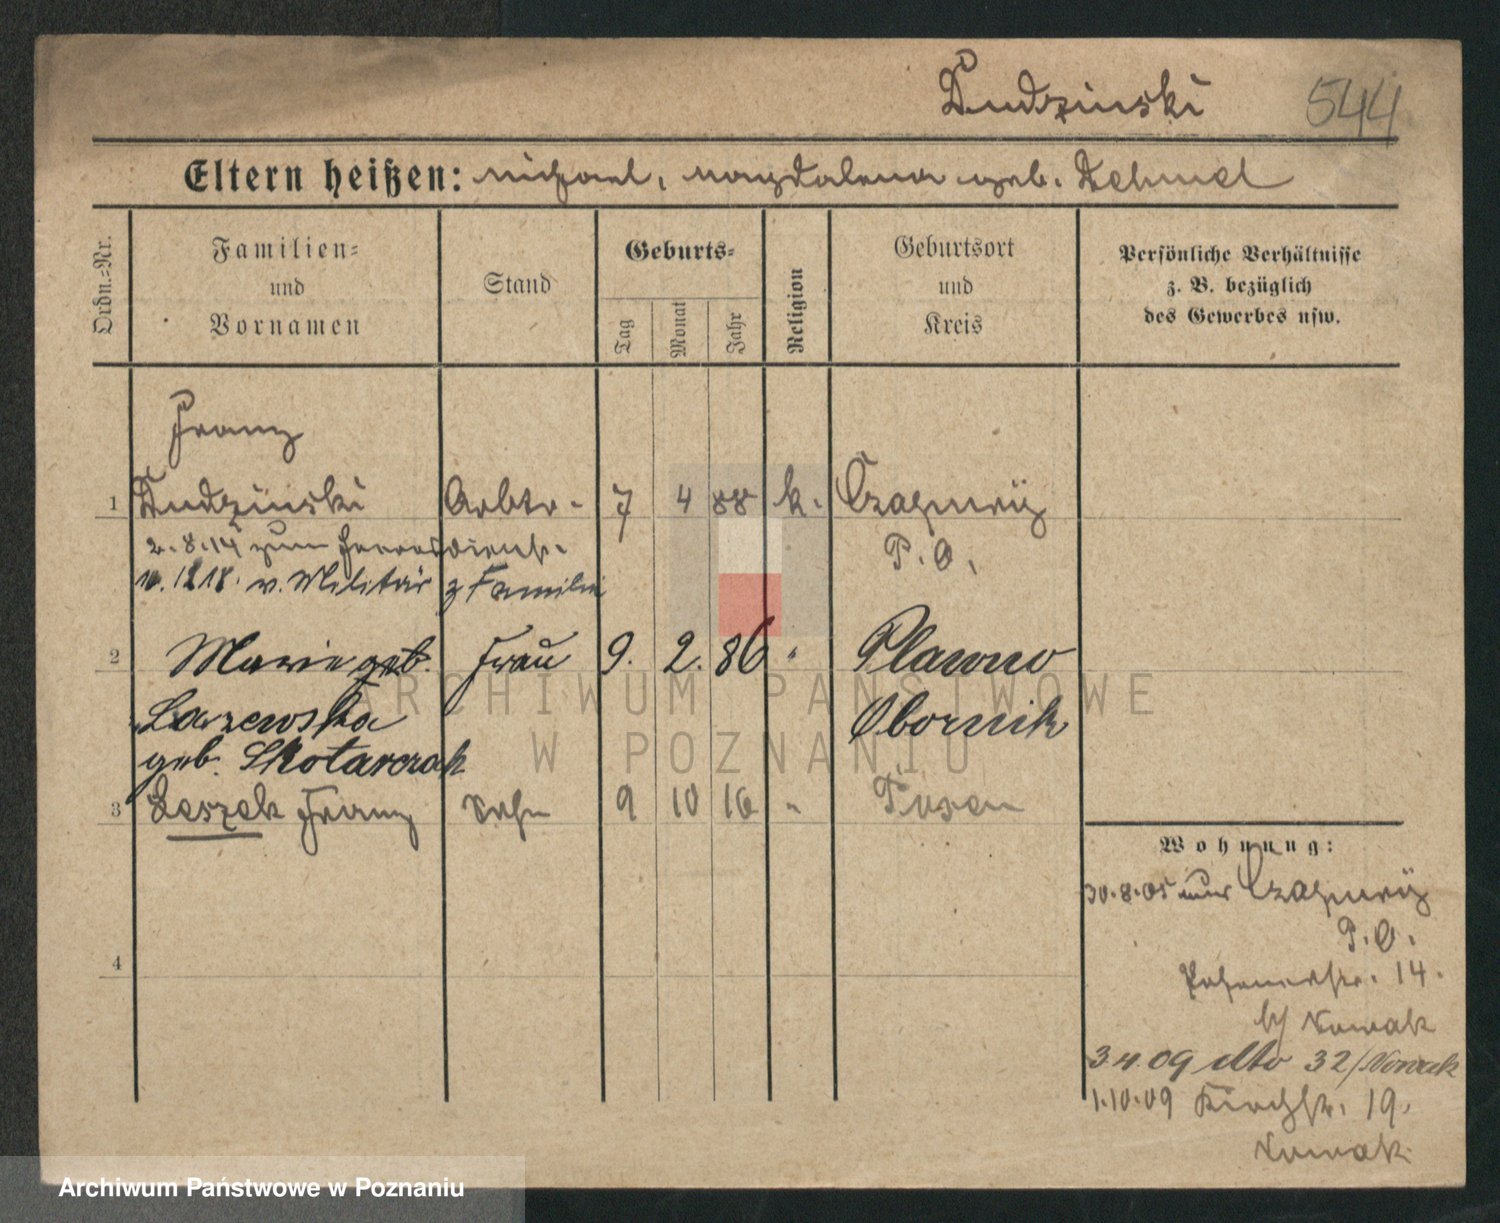 Dudzinski 544
Eltern heißen: Michael, Magdalena geb. Dehmel
Ordn.=Nr.
Familien=
und
Vornamen
Stand
Geburts=
Tag
Monat
Jahr
Religion
Geburtsort
und
Kreis
Persönliche Verhältnisse
z. B. bezüglich
des Gewerbes usw.
Franz
1 Dudzinski Arbtr. 7 4 88 k. Czapury
2.8.14 zum Heeresdienst. P. O.
10.12 18. v. Militär z Familie
2 Marie geb. Frau 9. 2. 86 " Plawno
Lazewska Obornik
geb. Skotarczak
3 Leszek Franz Sohn 9 10 16 " Posen
4
Wohnung:
30.8.05 aus Czapury
P. O.
Posenerstr. 14.
b/ Nowak
3 4. 09 dto 32/Nowak
1.10.09 Kirchstr. 19.
Nowak
ARCHIWUM PAŃSTWOWE
W POZNANIU
Archiwum Państwowe w Poznaniu